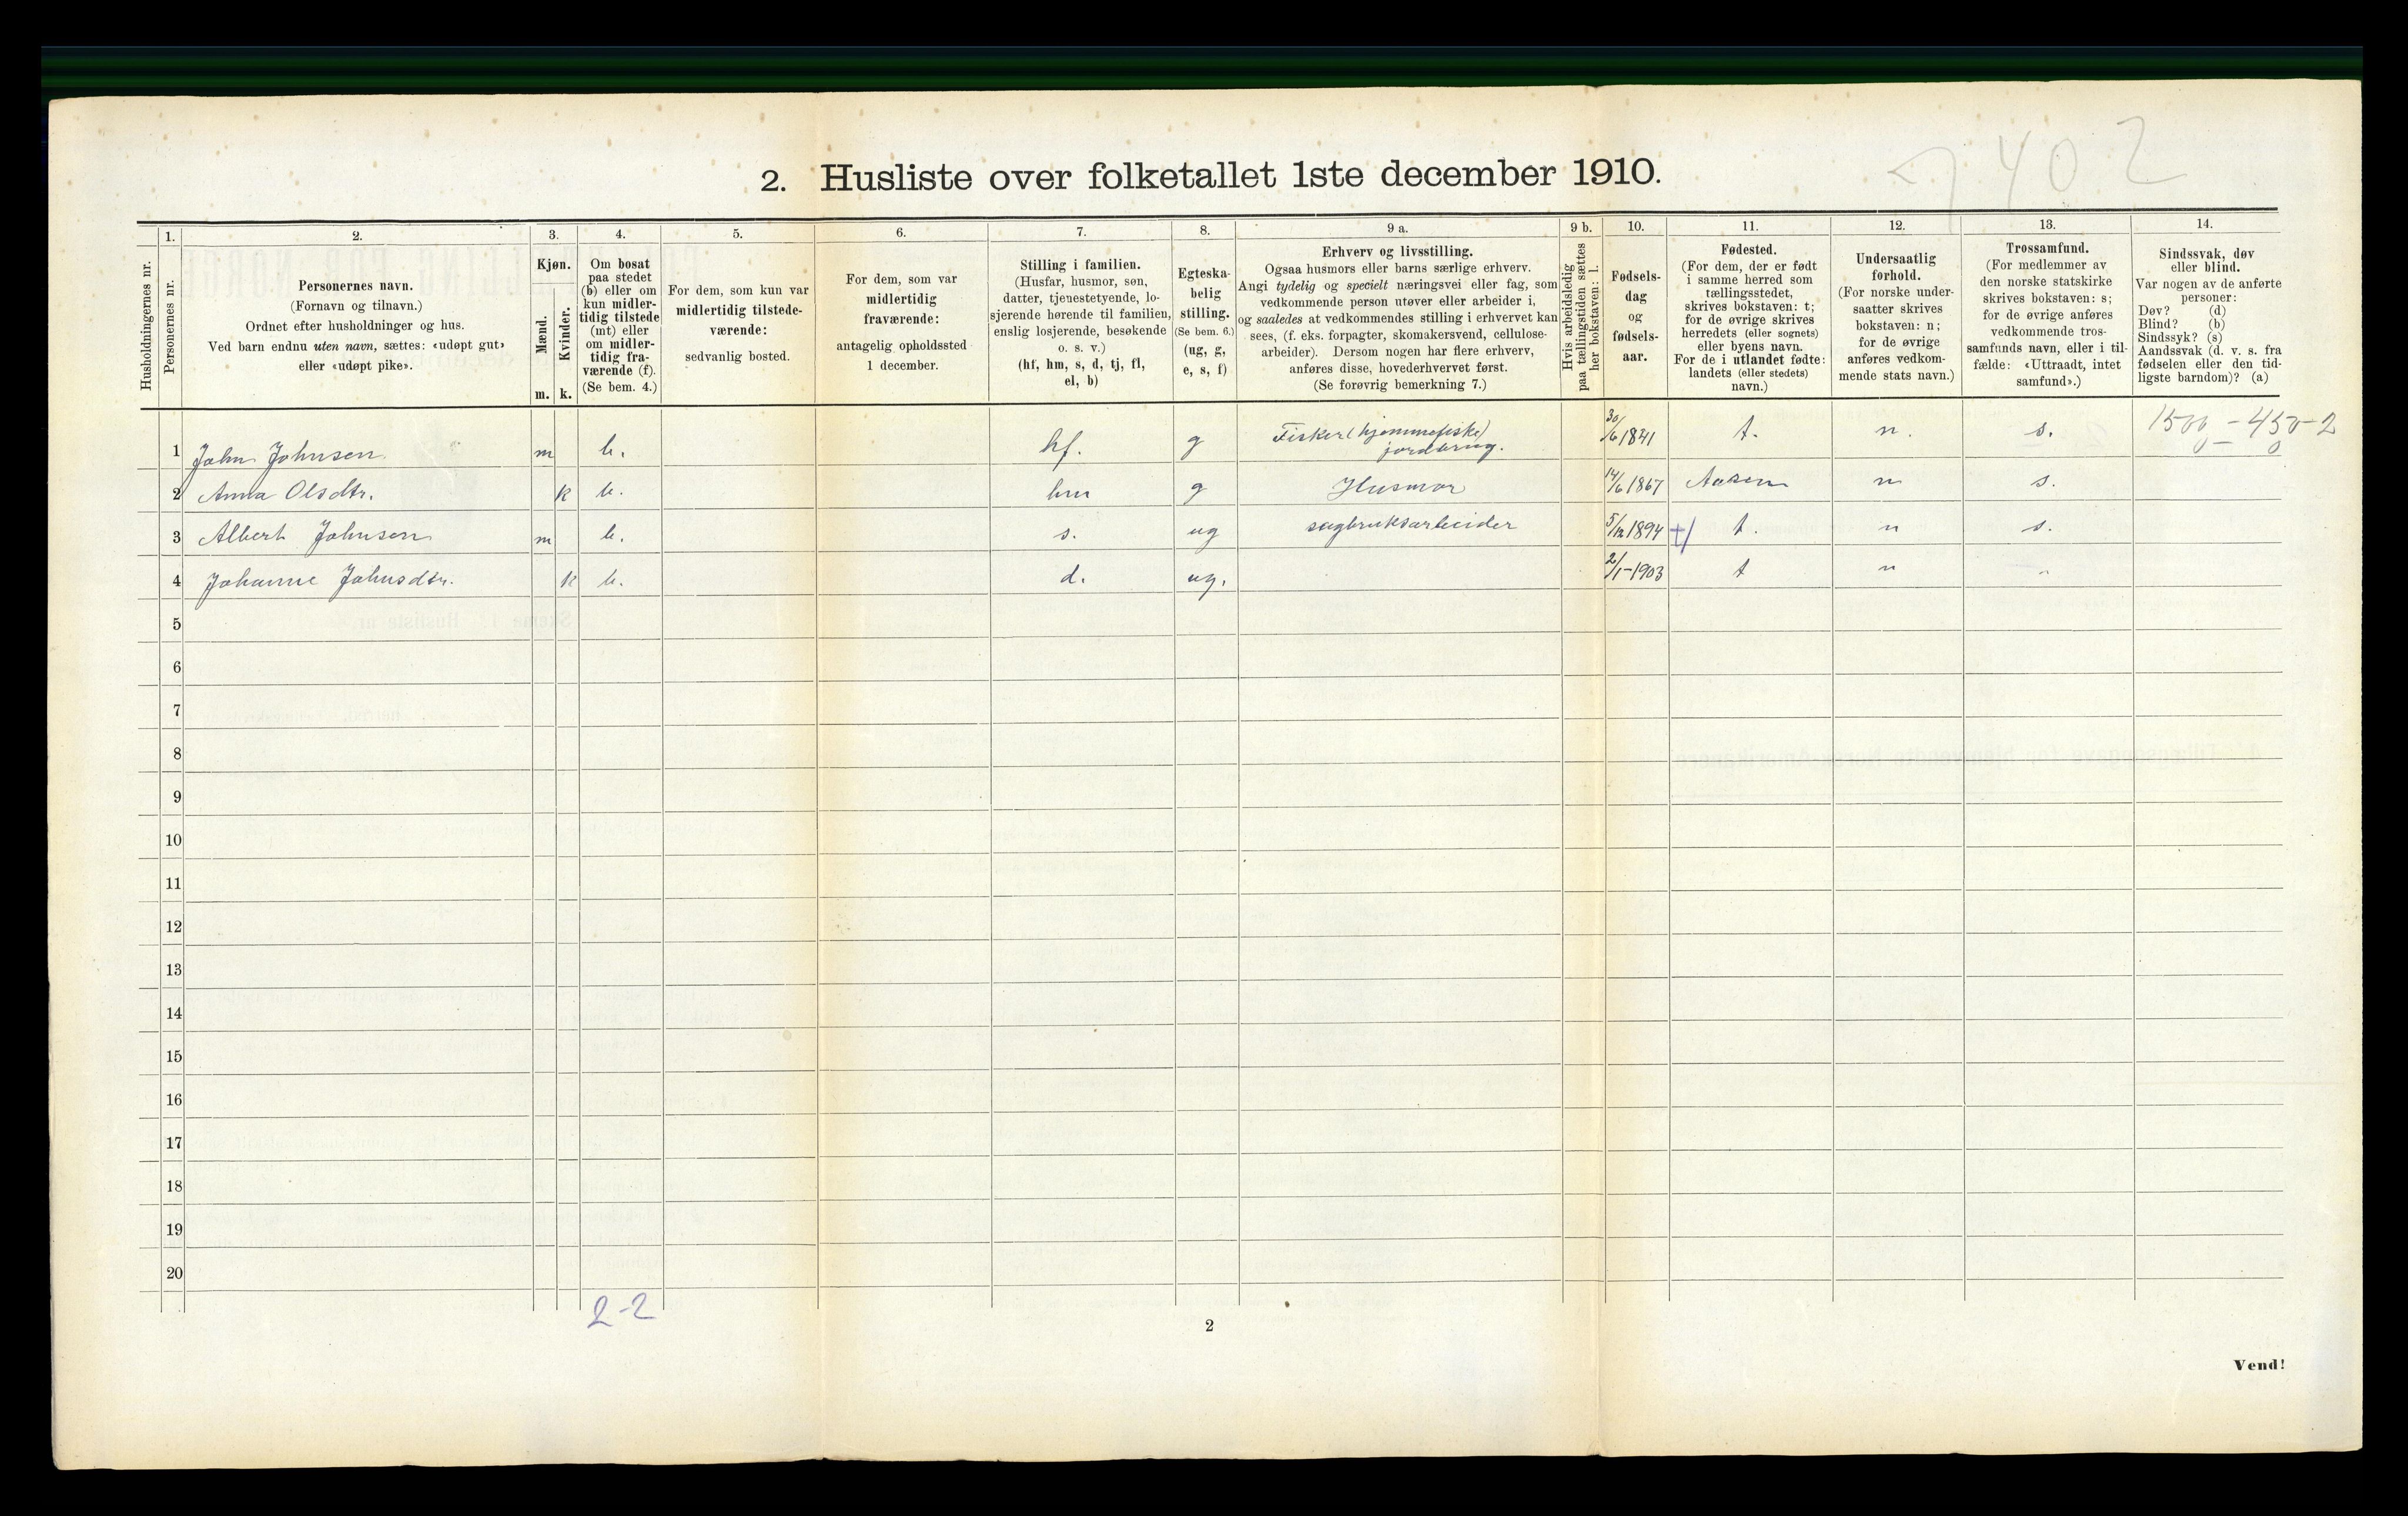 7402
2. Husliste over folketallet 1ste december 1910.
Husholdningernes nr.
1.
Personernes nr.
2.
Personernes navn.
(Fornavn og tilnavn.)
Ordnet efter husholdninger og hus.
Ved barn endnu uten navn, sættes: «udøpt gut»
eller «udøpt pike».
3.
Kjøn.
Mænd.
Kvinder.
m. k.
4.
Om bosat
paa stedet
(b) eller om
kun midler-
tidig tilstede
(mt) eller
om midler-
tidig fra-
værende (f).
(Se bem. 4.)
5.
For dem, som kun var
midlertidig tilstede-
værende:
sedvanlig bosted.
6.
For dem, som var
midlertidig
fraværende:
antagelig opholdssted
1 december.
7.
Stilling i familien.
(Husfar, husmor, søn,
datter, tjenestetyende, lo-
sjerende hørende til familien,
enslig losjerende, besøkende
o. s. v.)
(hf, hm, s, d, tj, fl,
el, b)
8.
Egteska-
belig
stilling.
(Se bem. 6.)
(ug, g,
e, s, f)
9 a.
Erhverv og livsstilling.
Ogsaa husmors eller barns særlige erhverv.
Angi tydelig og specielt næringsvei eller fag, som
vedkommende person utøver eller arbeider i,
og saaledes at vedkommendes stilling i erhvervet kan
sees, (f. eks. forpagter, skomakersvend, cellulose-
arbeider). Dersom nogen har flere erhverv,
anføres disse, hovederhvervet først.
(Se forøvrig bemerkning 7.)
9 b.
Hvis arbeidsledig
paa tællingstiden sættes
her bokstaven: l.
10.
Fødsels-
dag
og
fødsels-
aar.
11.
Fødested.
(For dem, der er født
i samme herred som
tællingsstedet,
skrives bokstaven: t;
for de øvrige skrives
herredets (eller sognets)
eller byens navn.
For de i utlandet fødte:
landets (eller stedets)
navn.)
12.
Undersaatlig
forhold.
(For norske under-
saatter skrives
bokstaven: n;
for de øvrige
anføres vedkom-
mende stats navn.)
13.
Trossamfund.
(For medlemmer av
den norske statskirke
skrives bokstaven: s;
for de øvrige anføres
vedkommende tros-
samfunds navn, eller i til-
fælde: «Uttraadt, intet
samfund».)
14.
Sindssvak, døv
eller blind.
Var nogen av de anførte
personer:
Døv? (d)
Blind? (b)
Sindssyk? (s)
Aandssvak (d. v. s. fra
fødselen eller den tid-
ligste barndom)? (a)
1 John Johnsen m b. hf. g Fisker (hjemmefiske) jordbrug. 30/6 1841 t. n. s. 1500 - 450 - 2
2 Anna Olsdtr. k b. hm g Husmor 14/6 1867 Aasen n s.
3 Albert Johnsen m b. s. ug sagbruksarbeider 5/12 1894 t. n s.
4 Johanne Johnsdtr. k b. d. ug. 2/1-1903 t n "
5
6
7
8
9
10
11
12
13
14
15
16
17
18
19
20
2-2
2
Vend!